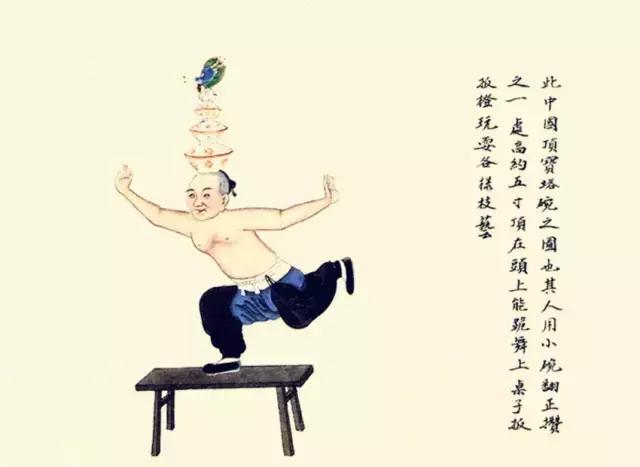 此中國頂寶塔碗之圖也其人用小碗翻正攢
之一處高約五寸頂在頭上能跪舞上桌子扳
扳櫈玩耍各樣技藝